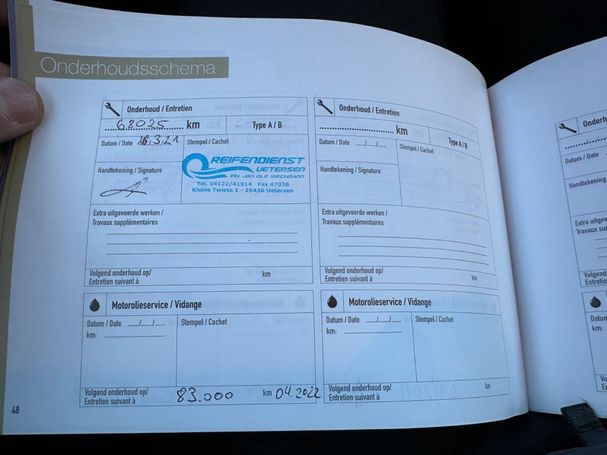 Onderhoudsschema
Onderhoud / Entretien
68025 km Type A / B
Datum / Date 16.3.21 Stempel / Cachet
REIFENDIENST
UETERSEN
Tel. 04122/41914 Fax 47038
Kleine Twiete 1 - 25436 Uetersen
Handtekening / Signature
Extra uitgevoerde werken /
Travaux supplémentaires
Volgend onderhoud op/
Entretien suivant à km
Motorolieservice / Vidange
Datum / Date ___/___/___ Stempel / Cachet
km:
Volgend onderhoud op/
Entretien suivant à 83.000 km 04.2022
48
Onderhoud / Entretien
km Type A / B
Datum / Date ___/___/___ Stempel / Cachet
Handtekening / Signature
Extra uitgevoerde werken /
Travaux supplémentaires
Volgend onderhoud op/
Entretien suivant à km
Motorolieservice / Vidange
Datum / Date ___/___/___ Stempel / Cachet
km:
Volgend onderhoud op/
Entretien suivant à km
Datum / Date
Handtekening
Extra
Travaux
Volgend
Entretien
Datum /
km:
Volgend
Entretien